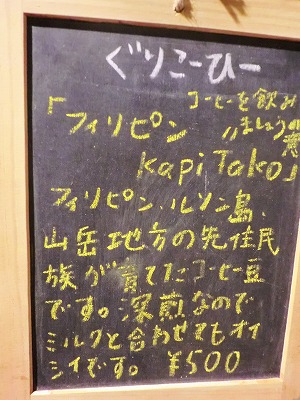 ぐりこーひー
「フィリピン
コーヒーを飲み
ましょうの意
Kapi Tako」
フィリピン、ルソン島、
山岳地方の先住民
族が育てたコーヒー豆
です。深煎なので
ミルクと合わせてもオイ
シイです。 ¥500